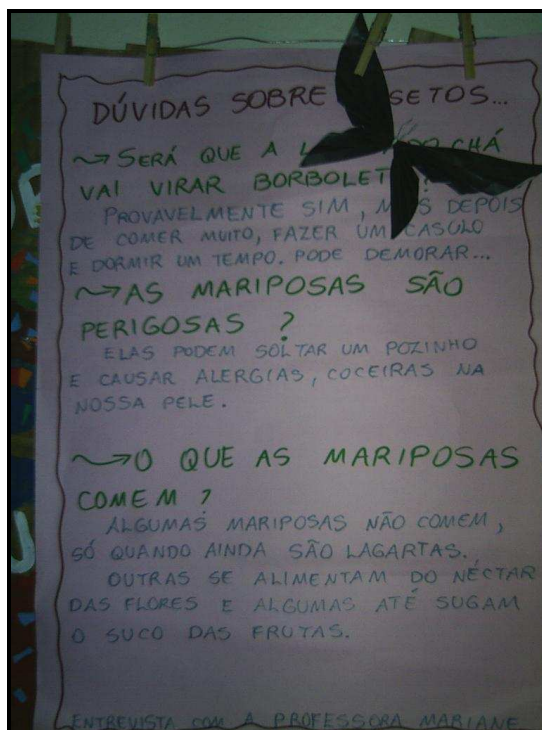 DÚVIDAS SOBRE SETOS...
~→ SERÁ QUE A L DO CHÁ
VAI VIRAR BORBOLET ?
PROVAVELMENTE SIM, MAS DEPOIS
DE COMER MUITO, FAZER UM CASULO
E DORMIR UM TEMPO. PODE DEMORAR...
~→ AS MARIPOSAS SÃO
PERIGOSAS ?
ELAS PODEM SOLTAR UM POZINHO
E CAUSAR ALERGIAS, COCEIRAS NA
NOSSA PELE.
~→ O QUE AS MARIPOSAS
COMEM ?
ALGUMAS MARIPOSAS NÃO COMEM,
SÓ QUANDO AINDA SÃO LAGARTAS.
OUTRAS SE ALIMENTAM DO NÉCTAR
DAS FLORES E ALGUMAS ATÉ SUGAM
O SUCO DAS FRUTAS.
ENTREVISTA COM A PROFESSORA MARIANE